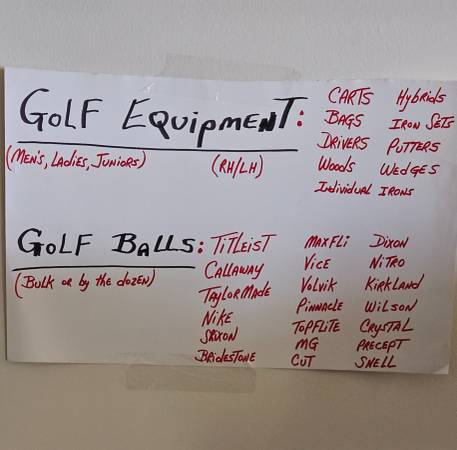 GOLF EQUIPMENT:
(MEN'S, LADIES, JUNIORS) (RH/LH)
CARTS Hybrids
BAGS IRON SETS
DRIVERS PUTTERS
WOODS WEDGES
INDIVIDUAL IRONS
GOLF BALLS:
(BULK OR by the dozen)
TITLEIST MAXFLI DIXON
CALLAWAY VICE NITRO
TAYLORMADE VOLVIK KIRKLAND
NIKE PINNACLE WILSON
SRIXON TOPFLITE CRYSTAL
BRIDESTONE MG PRECEPT
CUT SNELL